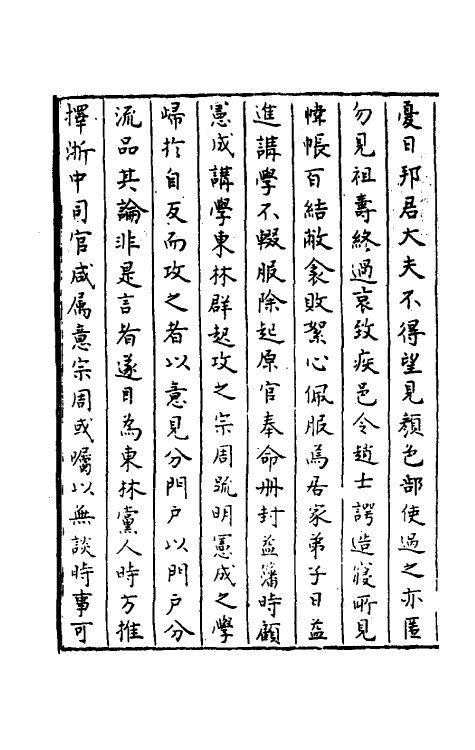 憂日邦君大夫不得望見顔色部使過之亦匿
勿見祖壽終過哀致疾邑令趙士諤造寝所見
幃帳百結敝衾敗絮心佩服焉居家弟子日益
進講學不輟服除起原官奉命冊封益藩時顧
憲成講學東林群起攻之宗周疏明憲成之學
歸於自反而攻之者以意見分門戶以門戶分
流品其論非是言者遂目為東林黨人時方推
擇浙中司官咸属意宗周或囑以無談時事可